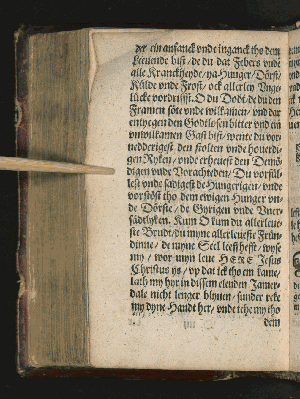 der ein anfanck vnde inganck tho dem
Leeuende bist / de du dat Febers vnde
alle Kranckheyde / ya Hunger / Dörst /
Külde vnde Frost / ock allerley Vnge-
lücke vordriffst. O du Dodt de du den
Framen söte vnde wilkamen / vnd dar
entyegen den Godtlosen bitter vnd ein
vnwilkamen Gast bist / wente du vor-
nedderigest den stolten vnde houerdi-
gen Ryken / vnde erheuest den Demö-
digen vnde Vorachteden / Du vorfül-
lest vnde sadigest de Hungerigen / vnde
vorstöst tho dem ewigen Hunger vn-
de Dörste / de Gyrigen vnde Vner-
sädtlyken. Kum O kum du allerleue-
ste Brudt / du myne allerleueste Frün-
dinne / de myne Seel leeff hefft / wyse
my / wor myn leue HERE Jesus
Christus ys / vp dat ick tho em kame /
Lath my hyr in dissem elenden Jamer-
dale nicht lenger blyuen / sunder recke
my dyne Handt her / vnde tehe my tho
dem